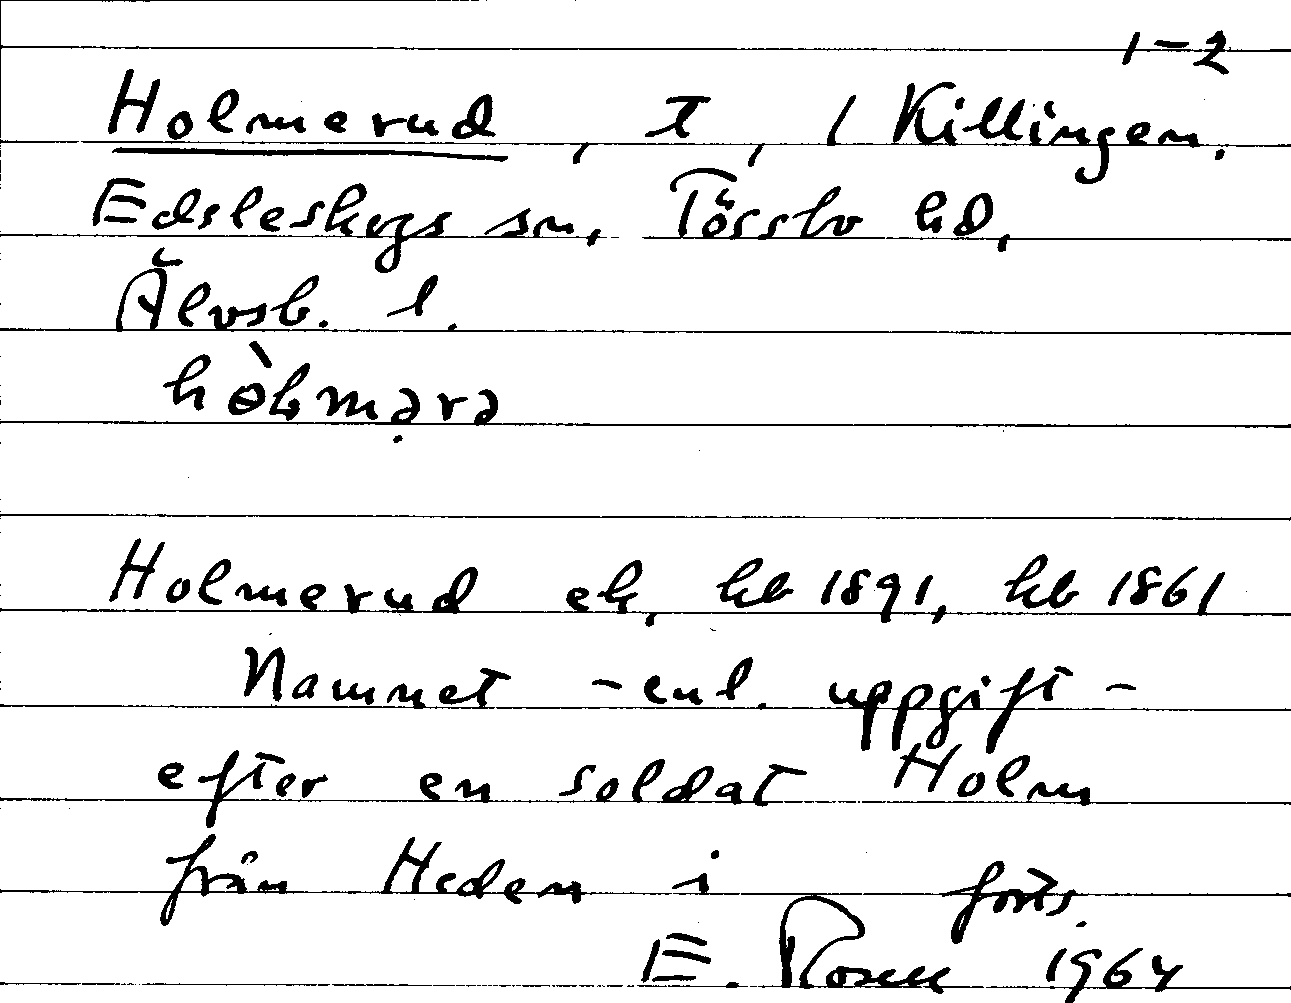 1-2
Holmerud, t, / Killingen.
Edsleskogs sn, Tössbo hd,
Älvsb. l.
hòlmərə
Holmerud ek, hb 1891, hb 1861
Namnet - enl. uppgift -
efter en soldat Holm
från Heden i forts.
E. Rosen 1964